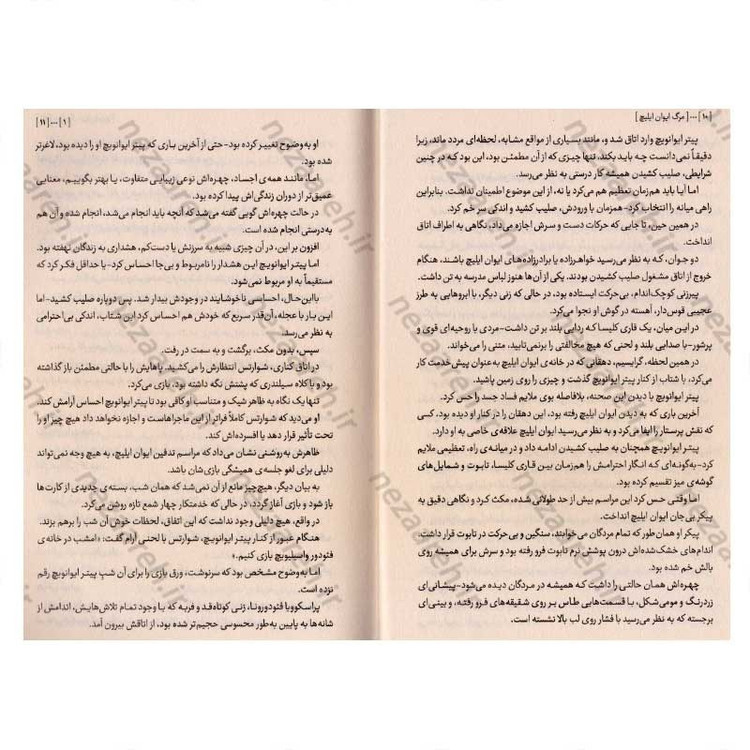 |۱۰| --- [مرگ ایوان ایلیچ]
پیتر ایوانویچ وارد اتاق شد و، مانند بسیاری از مواقع مشابه، لحظه‌ای مردد ماند، زیرا
دقیقاً نمی‌دانست چه باید بکند. تنها چیزی که از آن مطمئن بود، این بود که در چنین
شرایطی، صلیب کشیدن همیشه کار درستی به نظر می‌رسد.
اما آیا باید هم‌زمان تعظیم هم می‌کرد یا نه، از این موضوع اطمینان نداشت. بنابراین
راهی میانه را انتخاب کرد-همزمان با ورودش، صلیب کشید و اندکی سر خم کرد.
در همین حین، تا جایی که حرکات دست و سرش اجازه می‌داد، نگاهی به اطراف اتاق
انداخت.
دو جوان، که به نظر می‌رسید خواهرزاده یا برادرزاده‌های ایوان ایلیچ باشند، هنگام
خروج از اتاق مشغول صلیب کشیدن بودند. یکی از آن‌ها هنوز لباس مدرسه به تن داشت.
پیرزنی کوچک‌اندام، بی‌حرکت ایستاده بود، در حالی که زنی دیگر، با ابروهایی به طرز
عجیبی قوس‌دار، آهسته در گوش او نجوا می‌کرد.
در این میان، یک قاری کلیسا که ردایی بلند بر تن داشت-مردی با روحیه‌ای قوی و
پرشور-با صدایی بلند و لحنی که هیچ مخالفتی را برنمی‌تابید، متنی را می‌خواند.
در همین لحظه، گراسیم، دهقانی که در خانه‌ی ایوان ایلیچ به‌عنوان پیش خدمت کار
می‌کرد، با شتاب از کنار پیتر ایوانویچ گذشت و چیزی را روی زمین پاشید.
پیتر ایوانویچ با دیدن این صحنه، بلافاصله بوی ملایم فساد جسد را حس کرد.
آخرین باری که به دیدن ایوان ایلیچ رفته بود، این دهقان را در کنار او دیده بود، کسی
که نقش پرستار را ایفا می‌کرد و به نظر می‌رسید ایوان ایلیچ علاقه‌ی خاصی به او دارد.
پیتر ایوانویچ همچنان به صلیب کشیدن ادامه داد و در میانه‌ی راه، تعظیمی ملایم
کرد-به‌گونه‌ای که انگار احترامش را هم‌زمان بین قاری کلیسا، تابوت و شمایل‌های
گوشه‌ی میز تقسیم کرده بود.
اما وقتی حس کرد این مراسم بیش از حد طولانی شده، مکث کرد و نگاهی دقیق به
پیکر بی‌جان ایوان ایلیچ انداخت.
پیکر او همان‌طور که تمام مردگان می‌خوابند، سنگین و بی‌حرکت در تابوت قرار داشت.
اندام‌های خشک‌شده‌اش درون پوشش نرم تابوت فرو رفته بود و سرش برای همیشه روی
بالش خم شده بود.
چهره‌اش همان حالتی را داشت که همیشه در مردگان دیده می‌شود-پیشانی‌ای
زردرنگ و مومی‌شکل، با قسمت‌هایی طاس بر روی شقیقه‌های فرو رفته، و بینی‌ای
برجسته که به نظر می‌رسید با فشار روی لب بالا نشسته است.
[۱] --- |۱۱|
او به‌وضوح تغییر کرده بود-حتی از آخرین باری که پیتر ایوانویچ او را دیده بود، لاغرتر
شده بود.
اما، مانند همه‌ی اجساد، چهره‌اش نوعی زیبایی متفاوت، یا بهتر بگوییم، معنایی
عمیق‌تر از دوران زندگی‌اش پیدا کرده بود.
در حالت چهره‌اش گویی گفته می‌شد که آنچه باید انجام می‌شد، انجام شده و آن هم
به‌درستی انجام شده است.
افزون بر این، در آن چیزی شبیه به سرزنش یا دست‌کم، هشداری به زندگان نهفته بود.
اما پیتر ایوانویچ این هشدار را نامربوط و بی‌جا احساس کرد-یا حداقل فکر کرد که
مستقیماً به او مربوط نمی‌شود.
بااین‌حال، احساسی ناخوشایند در وجودش بیدار شد. پس دوباره صلیب کشید-اما
این بار با عجله، آن‌قدر سریع که خودش هم احساس کرد این شتاب، اندکی بی‌احترامی
به نظر می‌رسد.
سپس، بدون مکث، برگشت و به سمت در رفت.
در اتاق کناری، شوارتس انتظارش را می‌کشید. پاهایش را با حالتی مطمئن باز گذاشته
بود و با کلاه سیلندری که پشتش نگه داشته بود، بازی می‌کرد.
تنها یک نگاه به ظاهر شیک و متناسب او کافی بود تا پیتر ایوانویچ احساس آرامش کند.
او می‌دید که شوارتس کاملاً فراتر از این ماجراهاست و اجازه نخواهد داد هیچ چیز او را
تحت تأثیر قرار دهد یا افسرده‌اش کند.
ظاهرش به‌روشنی نشان می‌داد که مراسم تدفین ایوان ایلیچ، به هیچ وجه نمی‌تواند
دلیلی برای لغو جلسه‌ی همیشگی بازی‌شان باشد.
به بیان دیگر، هیچ‌چیز مانع از آن نمی‌شد که همان شب، بسته‌ی جدیدی از کارت‌ها
باز شود و بازی آغاز گردد، در حالی که خدمتکار چهار شمع تازه روشن می‌کرد.
در واقع، هیچ دلیلی وجود نداشت که این اتفاق، لحظات خوش آن شب را برهم بزند.
هنگام عبور از کنار پیتر ایوانویچ، شوارتس با لحنی آرام گفت: «امشب در خانه‌ی
فئودور واسیلیویچ بازی کنیم.»
اما به‌وضوح مشخص بود که سرنوشت، ورق بازی را برای آن شب پیتر ایوانویچ رقم
نزده است.
پراسکوویا فئودورونا، زنی کوتاه‌قد و فربه که با وجود تمام تلاش‌هایش، اندامش از
شانه‌ها به پایین به‌طور محسوسی حجیم‌تر شده بود، از اتاقش بیرون آمد.
nezareh.ir